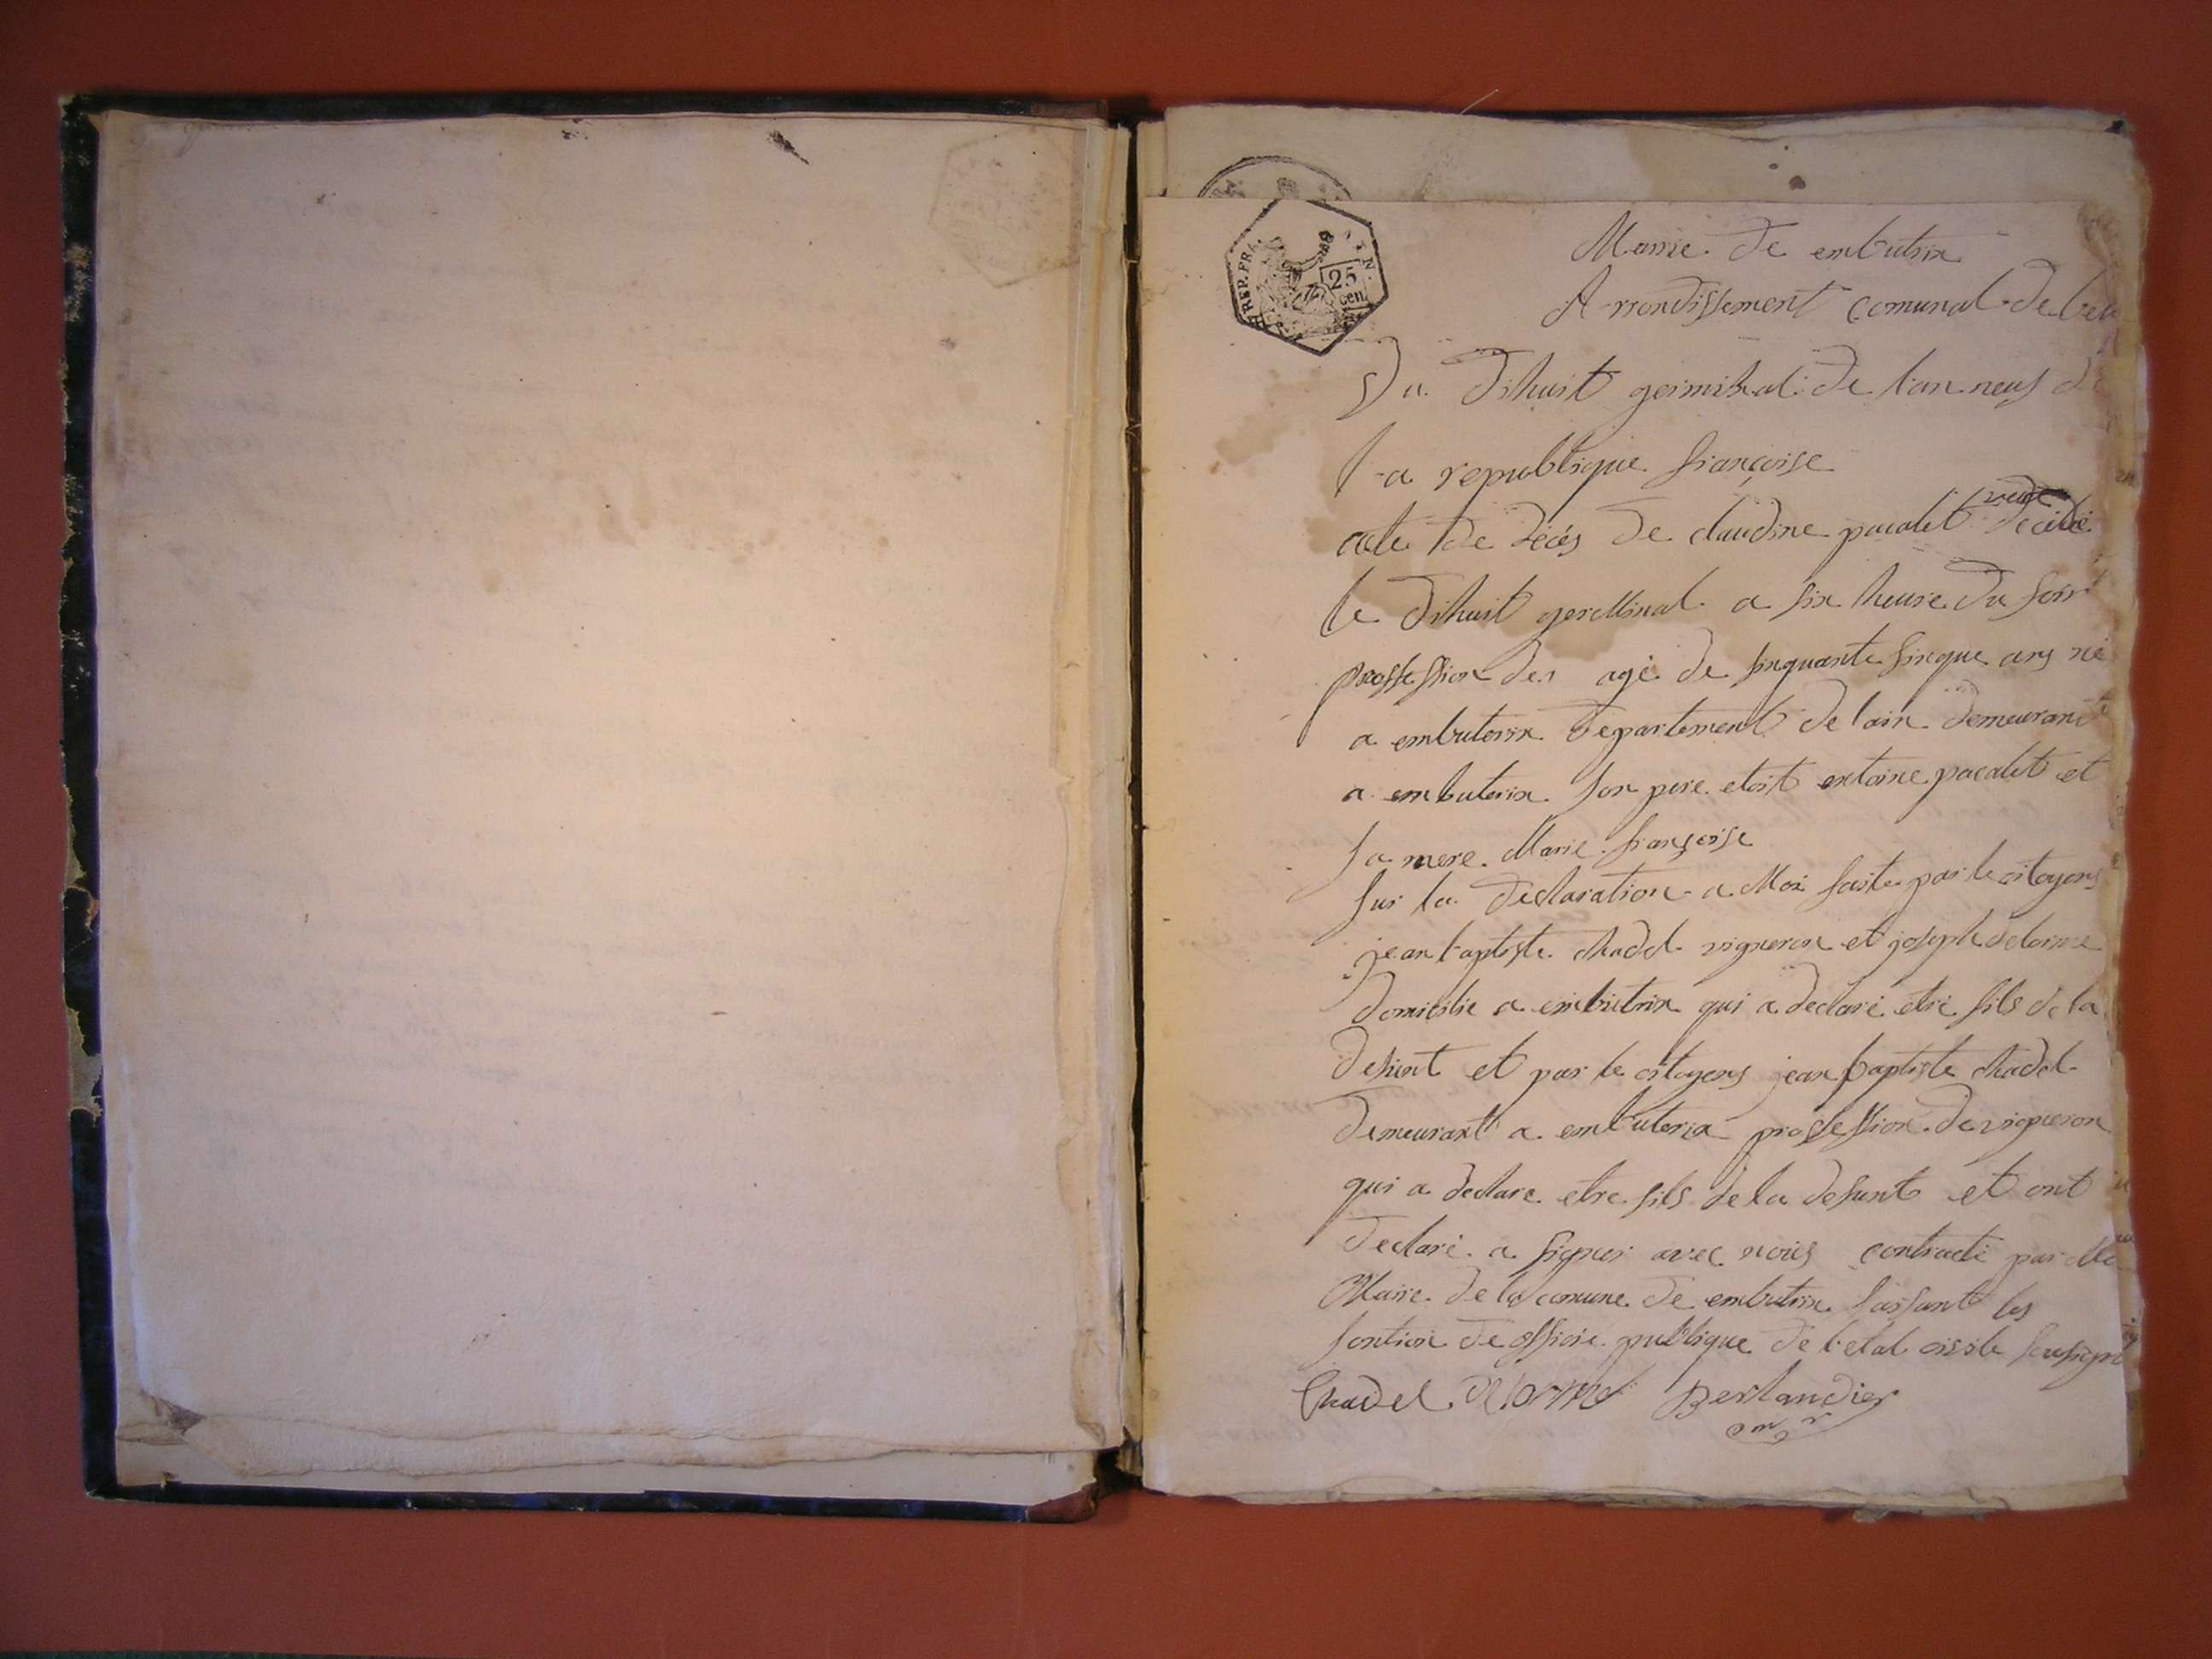 REP. FRA.
25
cen
Mairie de embutrix
Arrondissement comunal de bel
Du dihuit germinal de l'an neuf de
la republique françoise
acte de décés de claudine pacalet veuve décédé
le dihuit germinal a six heure du soir
proffession de agé de sinquante sinque ans né
a embuterix departement de lain demeurant
a embuterix son pere etoit entoine pacalet et
sa mere Marie françoise
sur la declaration a Moi faite par le citoyens
jean baptiste chadel vigneron et joseph delorme
domicilie a embutrix qui a declaré etre fils de la
defunt et par le citoyens jean baptiste chadel
demeurant a embuterix proffession de vigneron
qui a declare etre fils de la defunt et ont
declaré a signer avec nous par
Maire de la comune de embutrix faisant les
fontion de officie publique de l'etat civile sousigné
Chadel Delorme Berlandier